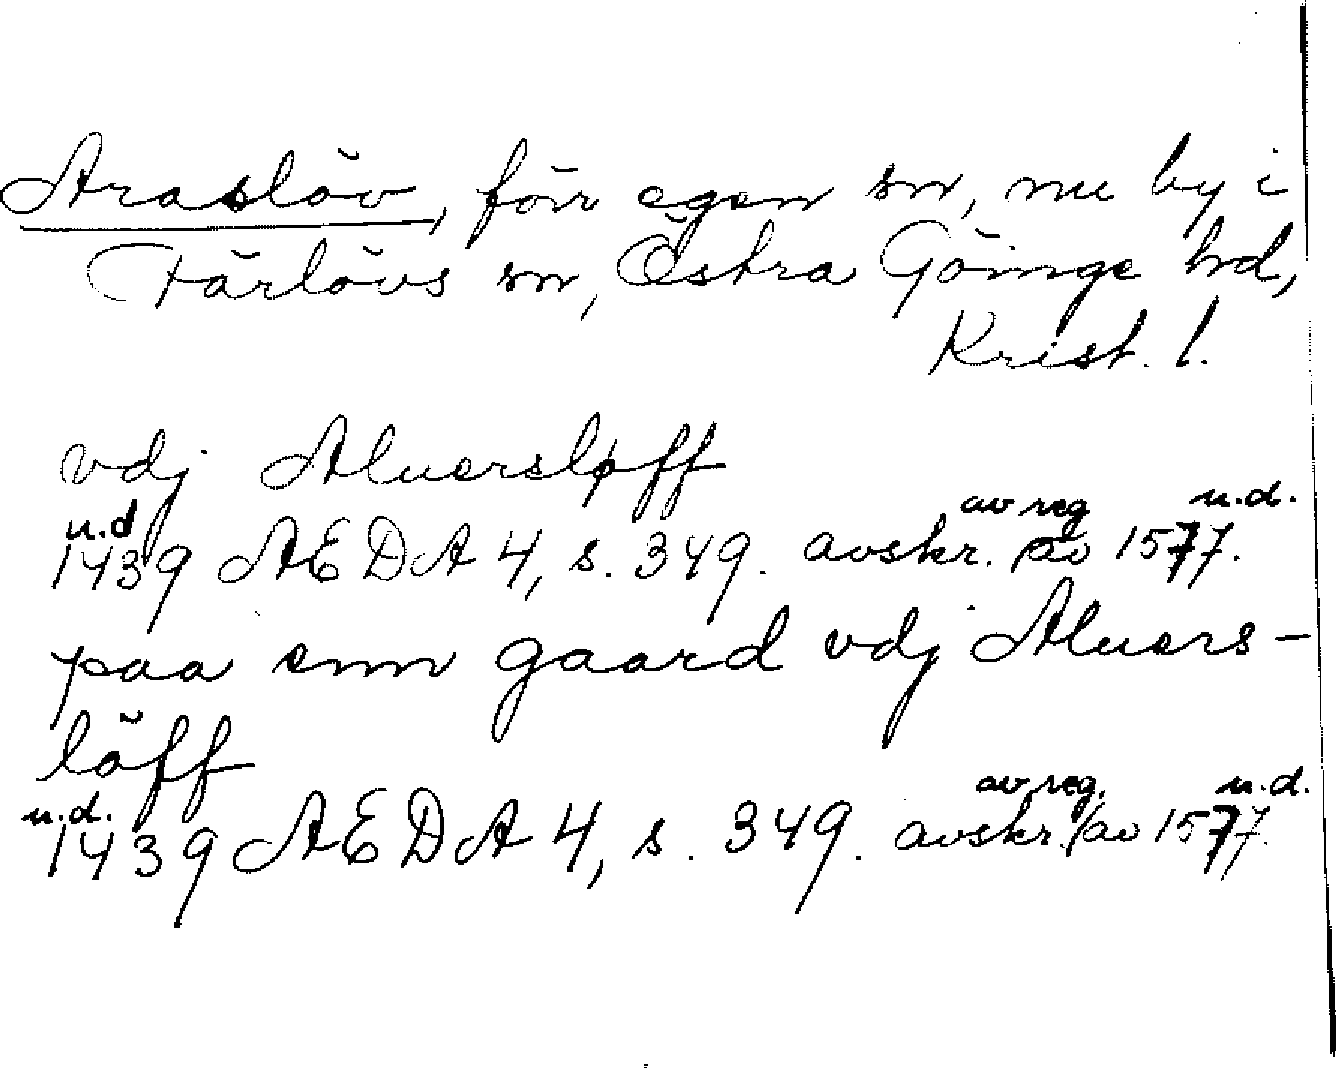 Araslöv, förr egen sn, nu by i
Färlövs sn, Östra Göinge hd,
Krist. l.
vdj Aluersløff
u.d av reg u.d.
1439 AEDA 4, s. 349. avskr. /av 1577.
paa enn gaard vdj Aluers-
löff
u.d. av reg. u.d.
1439 AEDA 4, s. 349. avskr. /av 1577.